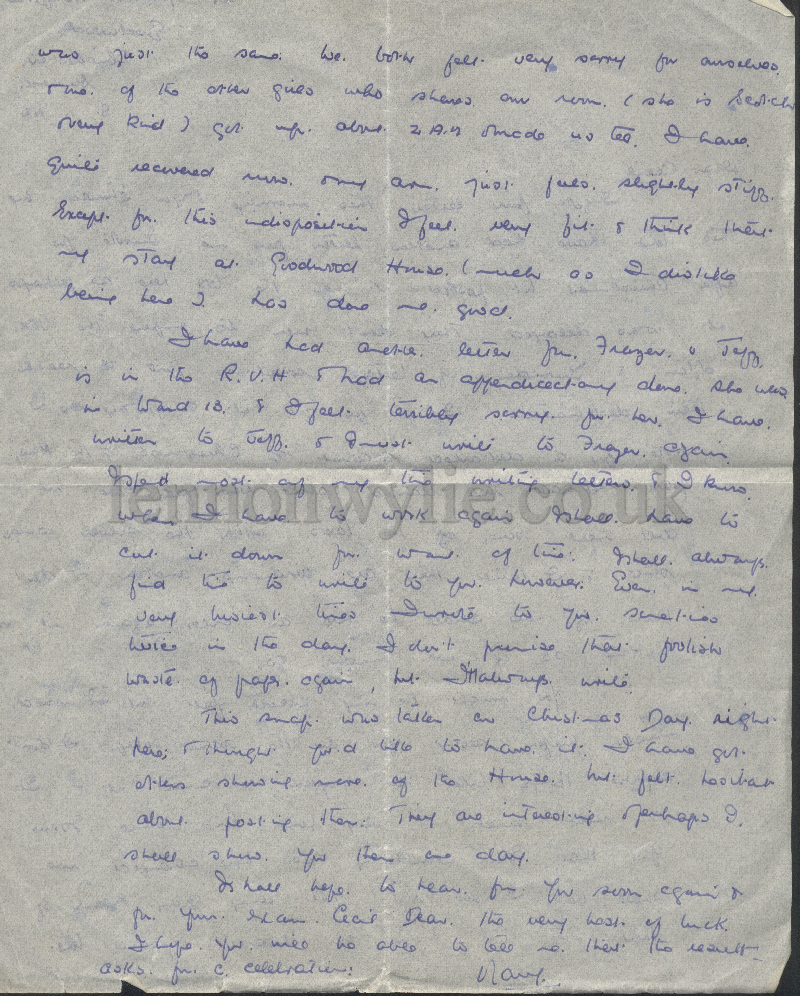 was just the same. We both felt very sorry for ourselves.
One of the other girls who shares our room. (she is Scotch
& very kind) got up. about 2 A.M & made us tea. I have.
quite recovered now. & my arm. just feels. slightly stiff.
Except for. this indisposition I feel. very fit & think that
my stay at Goodwood House. (much as I dislike
being here). has done me. good.
I have had another. letter from. Frazer. & Taff.
is in the R.V.H & had an appendicectomy done. She was
in Ward 13. & I feel. terribly sorry. for her. I have.
written to Taff. & I must write to Frazer. again.
I spend most of my time writing letters. & I know.
when I have to work again I shall. have to
cut it down for want of time. I shall. always.
find time to write to you. however. Even. in my
very busiest times I wrote to you. sometimes
twice in the day. I don't promise that foolish
waste of paper. again, but I'll always. write.
This snap. was taken on Christmas Day. night
here; & thought you'd like to have. it. I have got
others showing more. of the House. but felt. hesitant
about. posting them. They are interesting & perhaps I.
shall show. you them one day.
I shall hope. to hear. from you soon again &
for. your. exam. Cecil Dear. the very best of luck.
I hope. you will be able. to tell me. that. the result
asks. for. a. celebration.
Nancy.
lennonwylie.co.uk